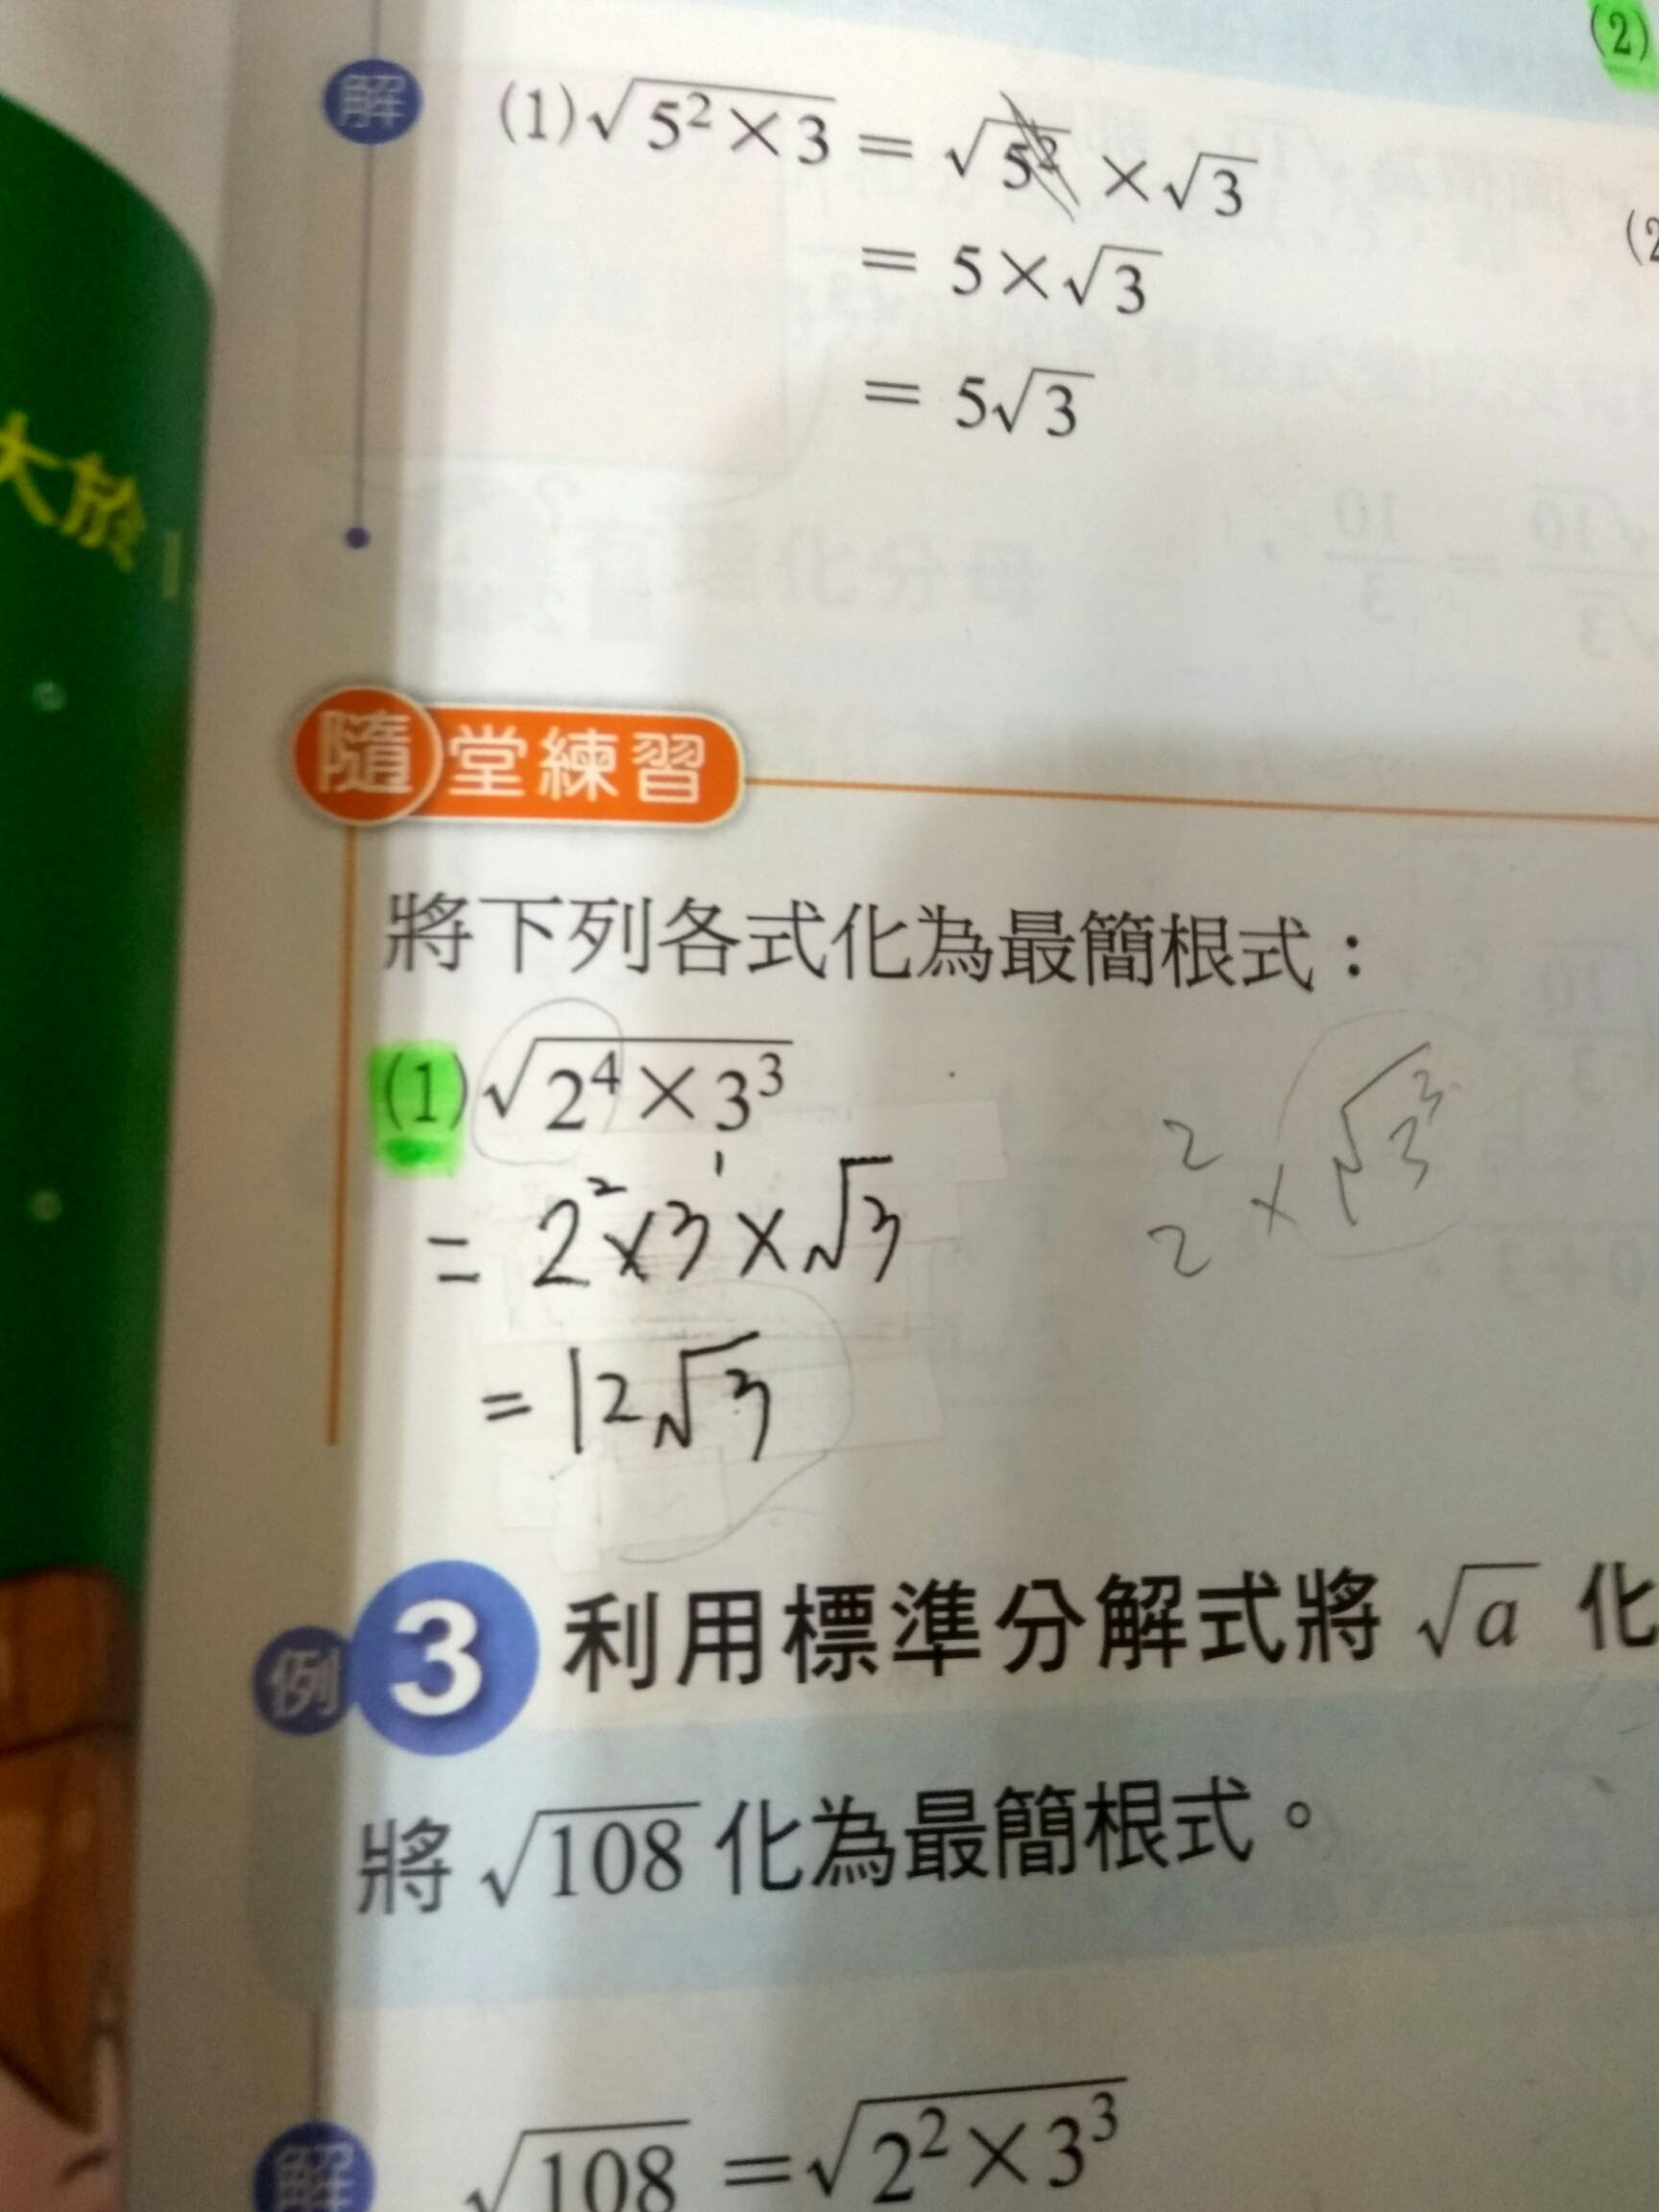 (2)
解 (1)√(5²×3) = √5² × √3
(2
= 5×√3
= 5√3
大於
隨堂練習
將下列各式化為最簡根式：
(1)√(2⁴×3³)
= 2²×3¹×√3
2
2 × √3³
= 12√3
例3 利用標準分解式將 √a 化
將 √108 化為最簡根式。
解 √108 = √(2²×3³)